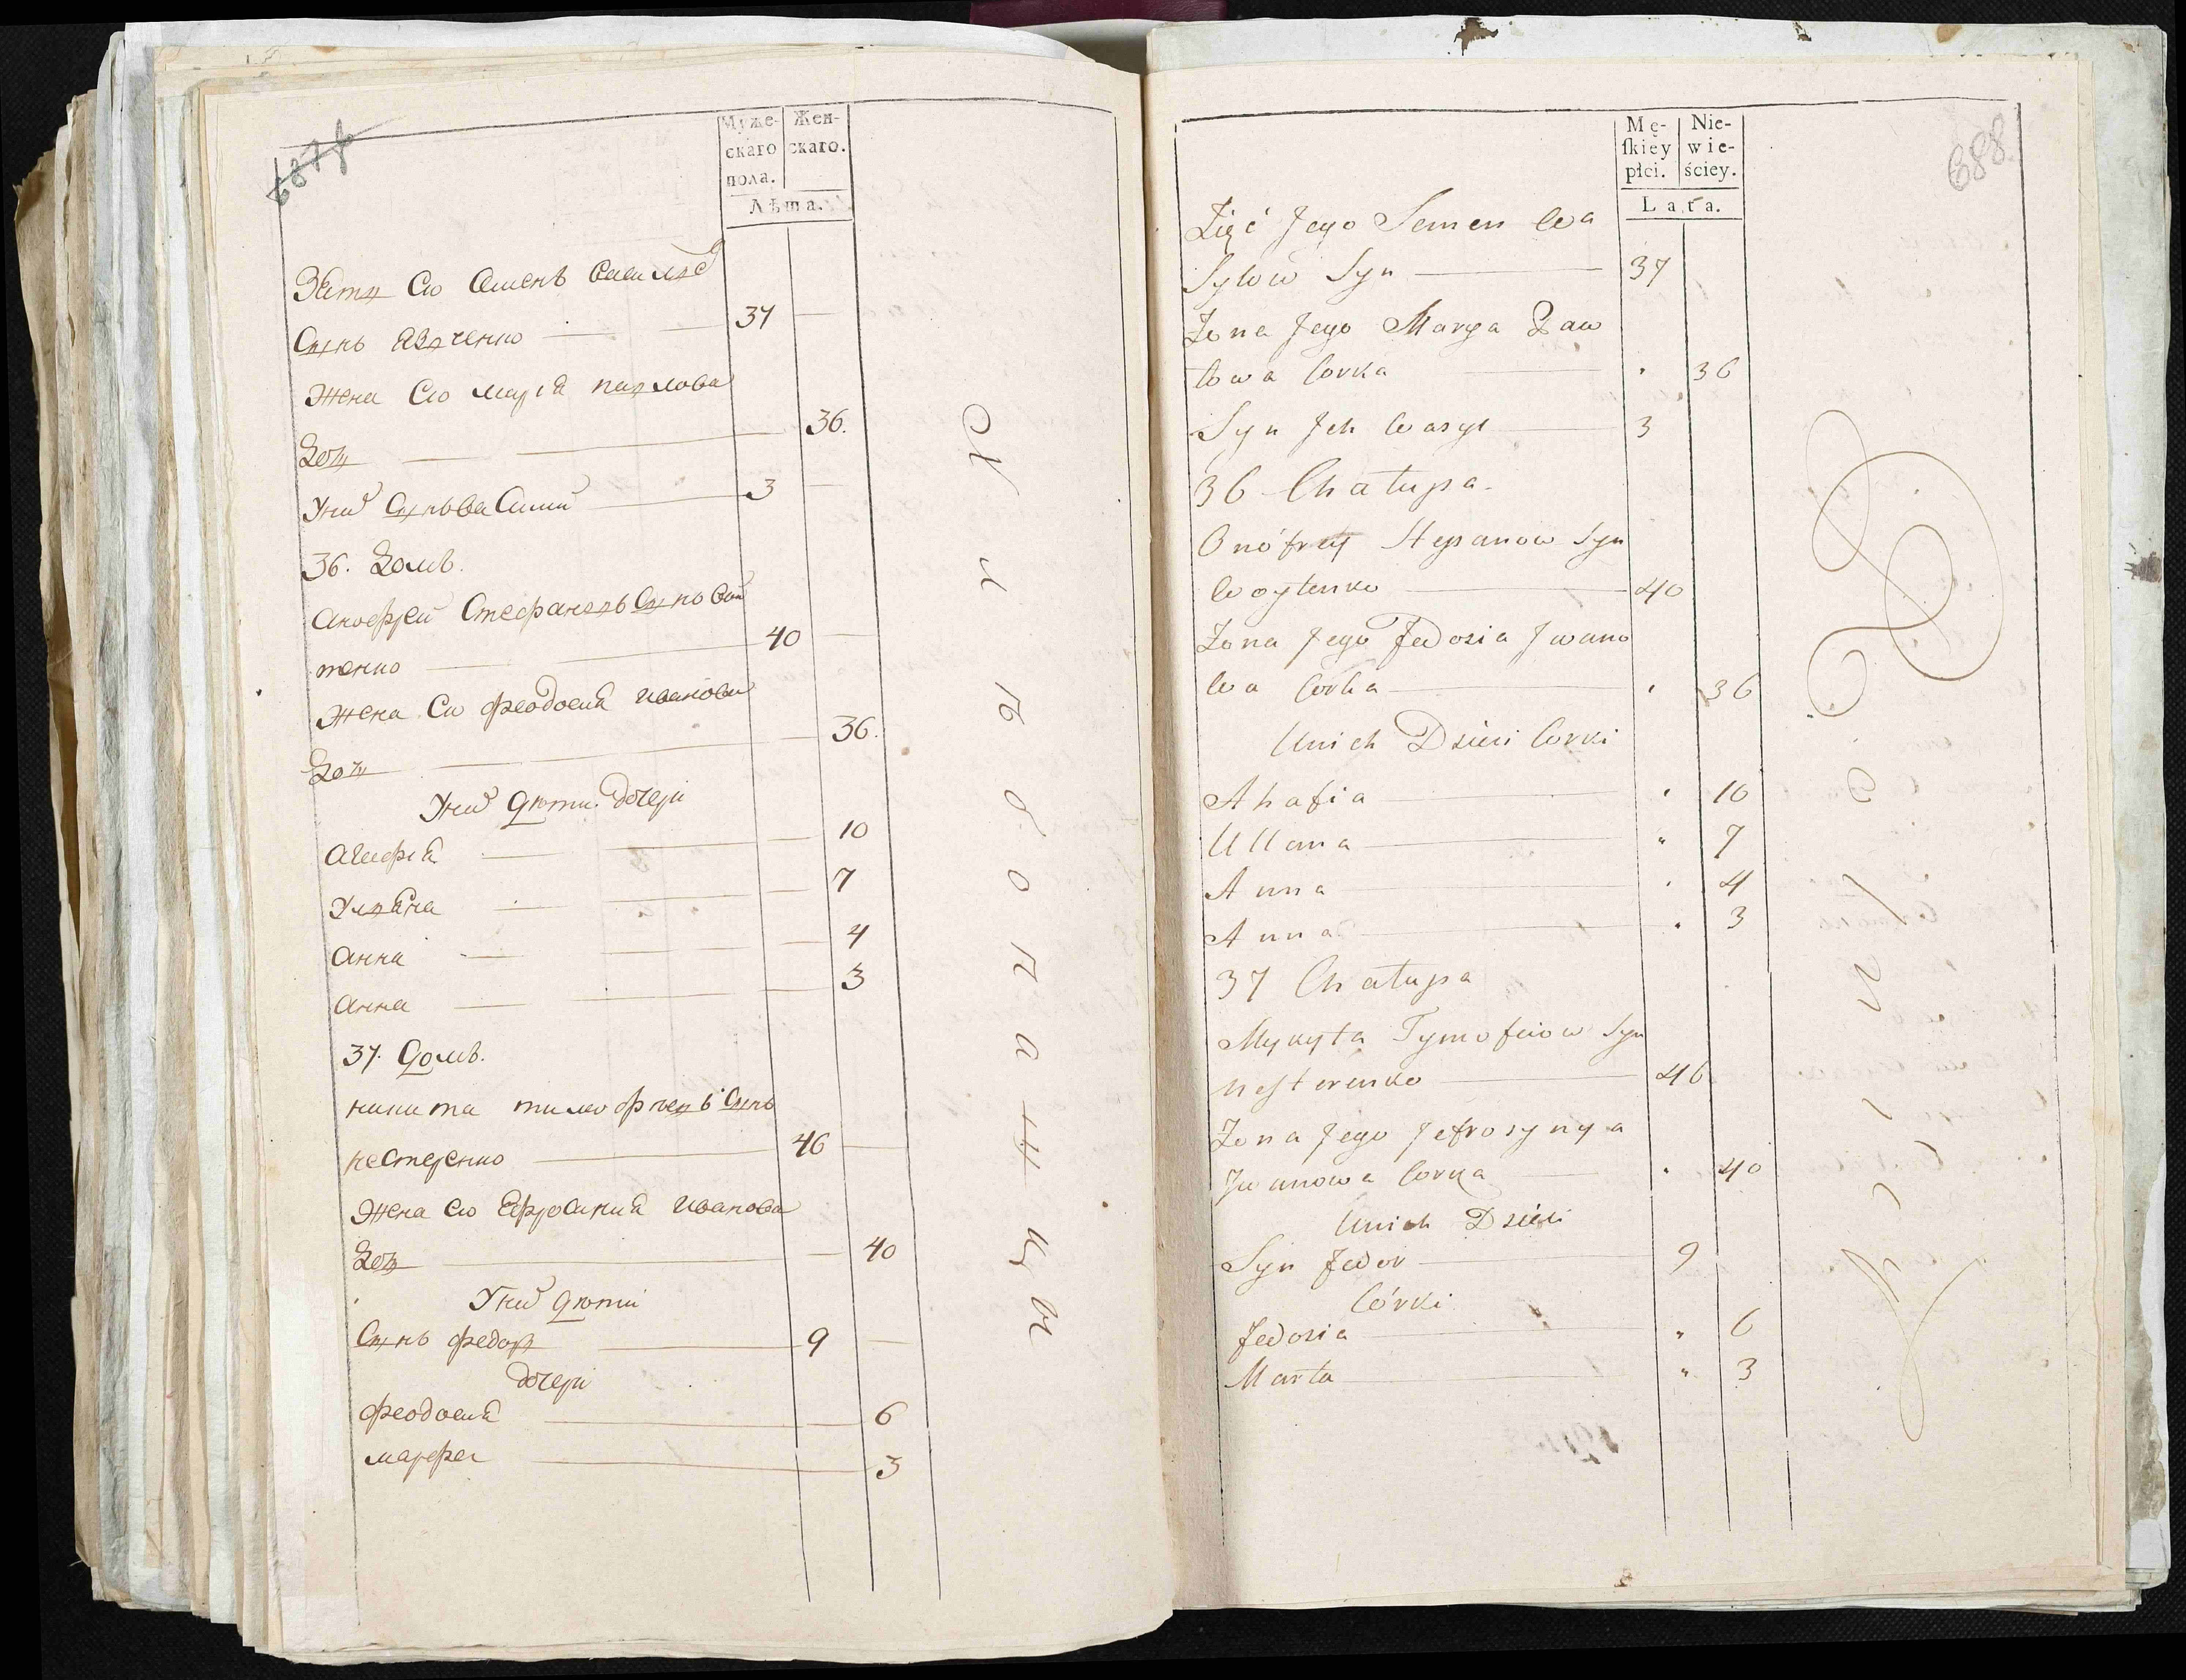 687
Муже-
скаго
пола.
Жен-
скаго.
Лѣта.
Зять Єго Семенъ Василев
Сынъ Явченко 37
Жена Єго Марія павлова
Доч 36.
Уних Сынъ Василий 3
36. Домъ.
Анофрей Стефановъ Сынъ Вой
тенко 40
Жена Єго Феодосия иванова
Доч 36.
Уних Дѣти дочери
Агафія 10
Уляна 7
Анна 4
Анна 3
37. Домъ.
никита тимофѣевъ Сынъ
нестеренко 46
Жена Єго Ефросиния иванова
Доч 40
Уних Дѣти
Сынъ федор 9
дочери
Феодосия 6
марфа 3
Mę-
skiey
płci.
Nie-
wie-
ściey.
Lata.
688.
Zięć Jego Semen Wa
Sylow Syn 37
Żona Jego Marya Paw
lowa Corka 36
Syn Jch Wasyl 3
36 Chałupa
Onófrey Stepanow Syn
Woytenko 40
Żona Jego Fedosia Jwano
wa Corka 36
Unich Dzieci Corki
Ahafia 10
Ullana 7
Anna 4
Anna 3
37 Chałupa
Mykyta Tymofeiow Syn
Nesterenko 46
Żona Jego Jefrosynya
Jwanowa Corka 40
Unich Dzieci
Syn Fedor 9
Córki
Fedosia 6
Marta 3